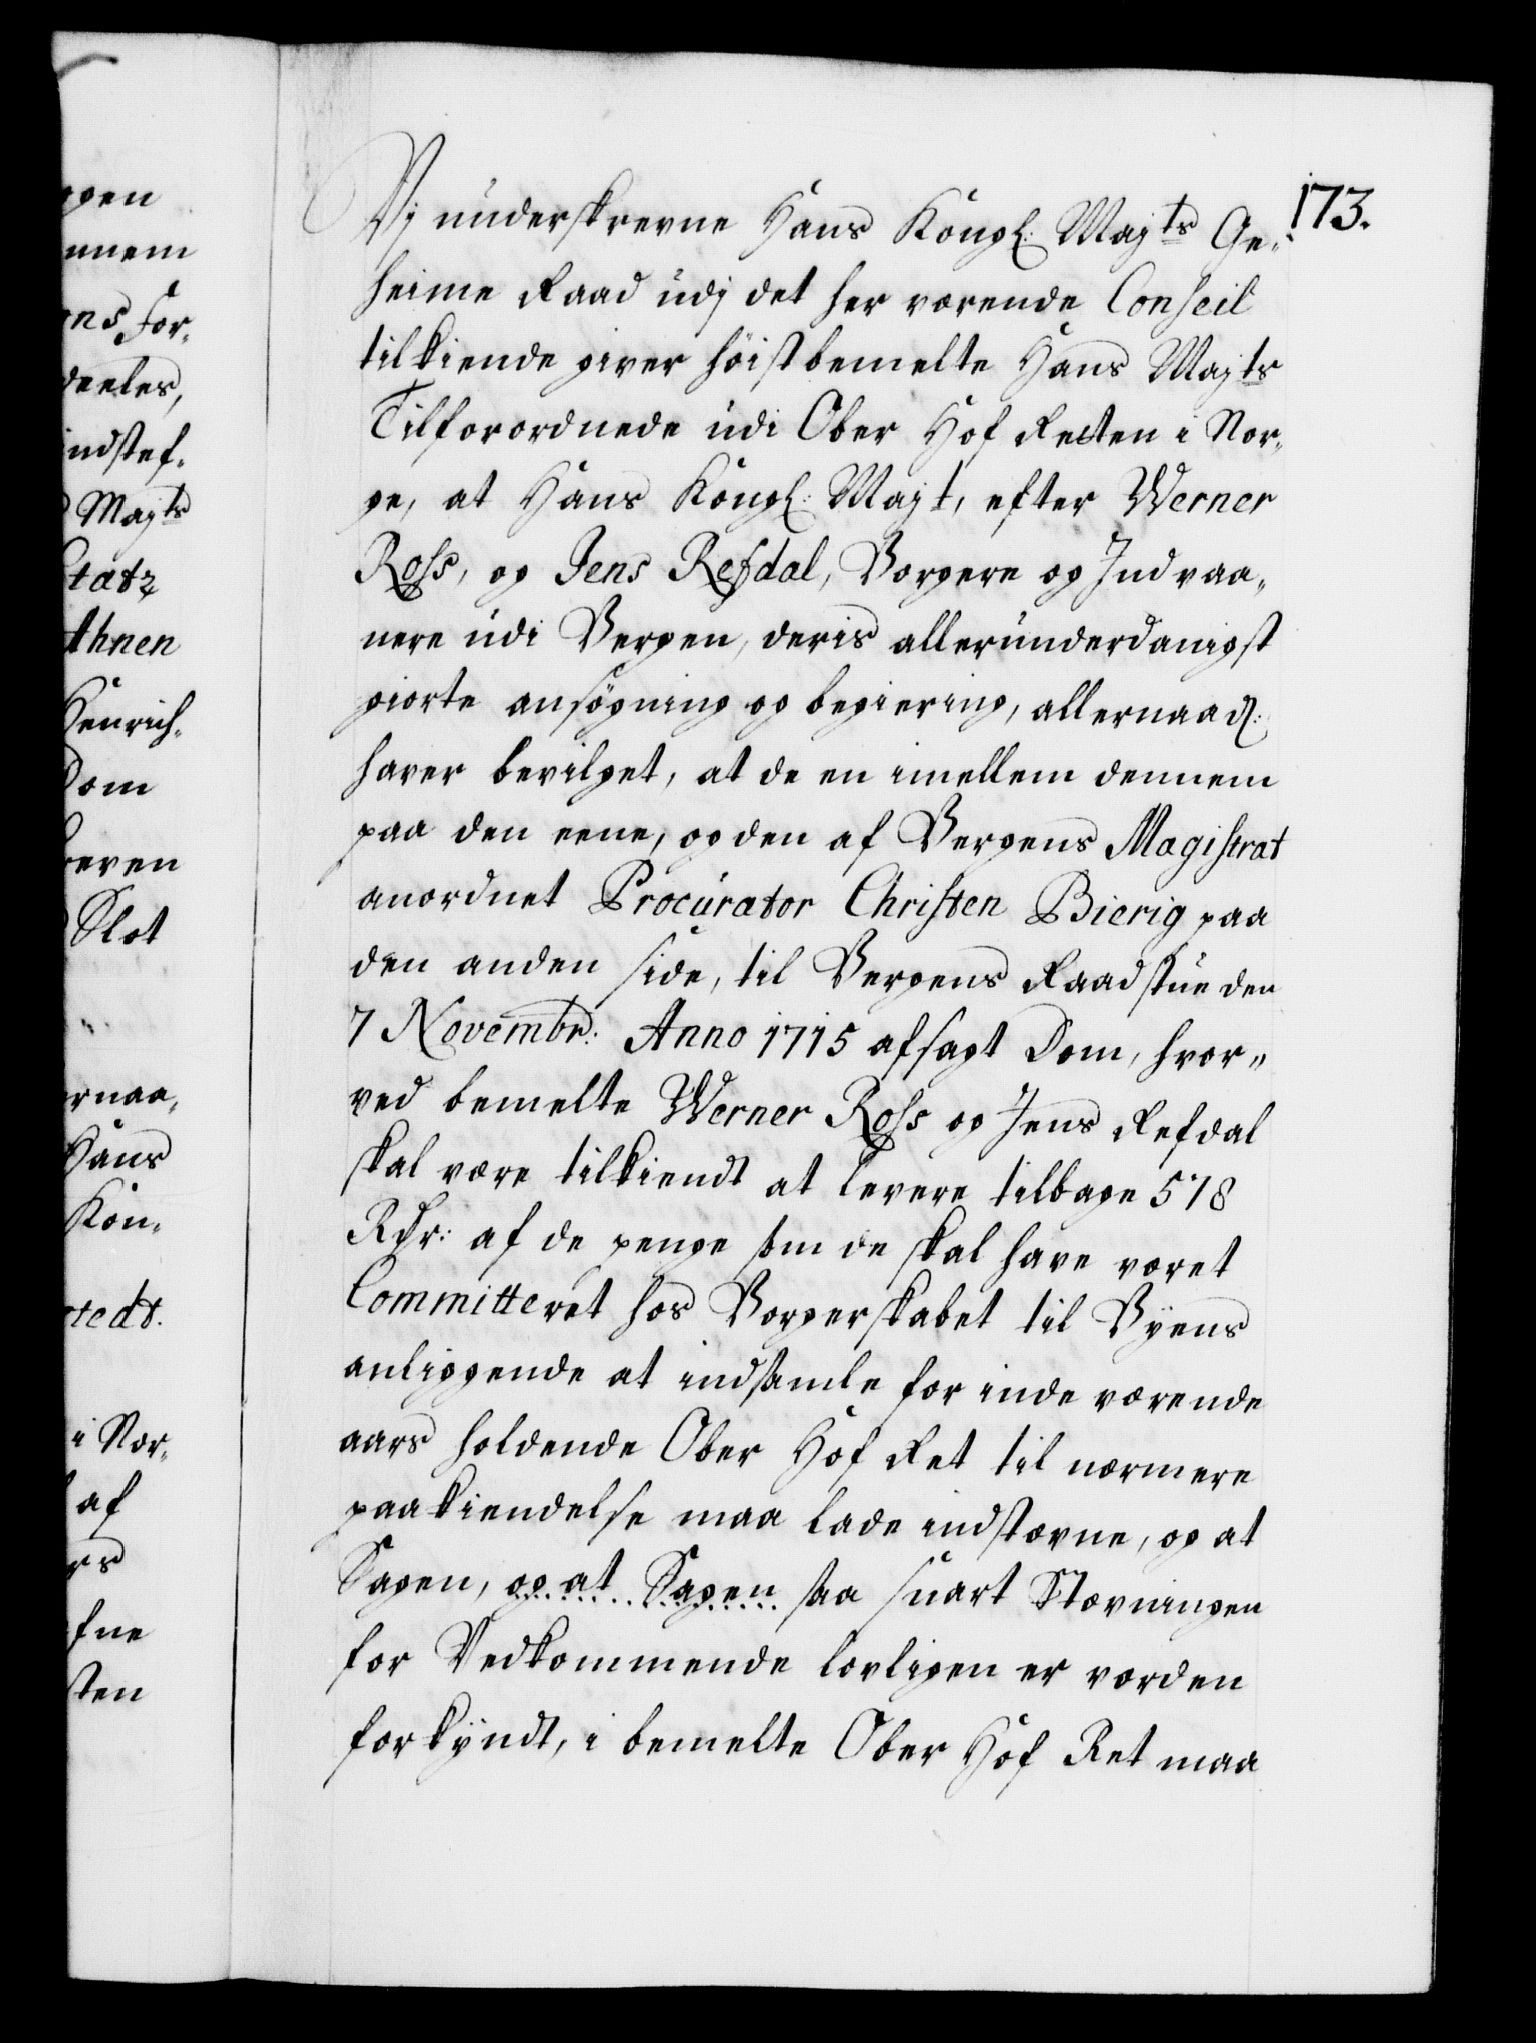 173.
Vj underskrevne Hans Kongl: Majts Ge-
heime Raad udj det her værende Conseil
tilkiende giver höistbemelte Hans Majts
Tilforordnede udi Ober Hof Retten i Nor-
ge, at Hans Kongl: Majt, efter Werner
Ross, og Jens Refdal, Borgere og Indvaa-
nere udi Bergen, deris allerunderdanigst
giorte ansögning og begiering, allernaad:
haver bevilget, at de en imellem dennem
paa den eene, og den af Bergens Magistrat
anordnet Procurator Christen Bierig paa
den anden side, til Bergens Raadstue den
7 Novembr: Anno 1715 afsagt Dom, hvor-
ved bemelte Werner Ross og Jens Refdal
skal være tilkiendt at levere tilbage 578
Rdr: af de penge som de skal have været
Committeret hos Borgerskabet til Byens
anliggende at indsamle for inde værende
aars holdende Ober Hof Ret til nærmere
paakiendelse maa lade indstævne, og at
Sagen, og at Sagen saa snart Stævningen
for Vedkommende lovligen er vorden
forkyndt, i bemelte Ober Hof Ret maa
gen
nnem
ns For-
deeles,
indstef-
Majts
tatz
Ahnen
Henrich-
Dom
reven
Slot
rnaa-
Hans
Kon-
stedt.
i Nor-
af
rs
fne
sten